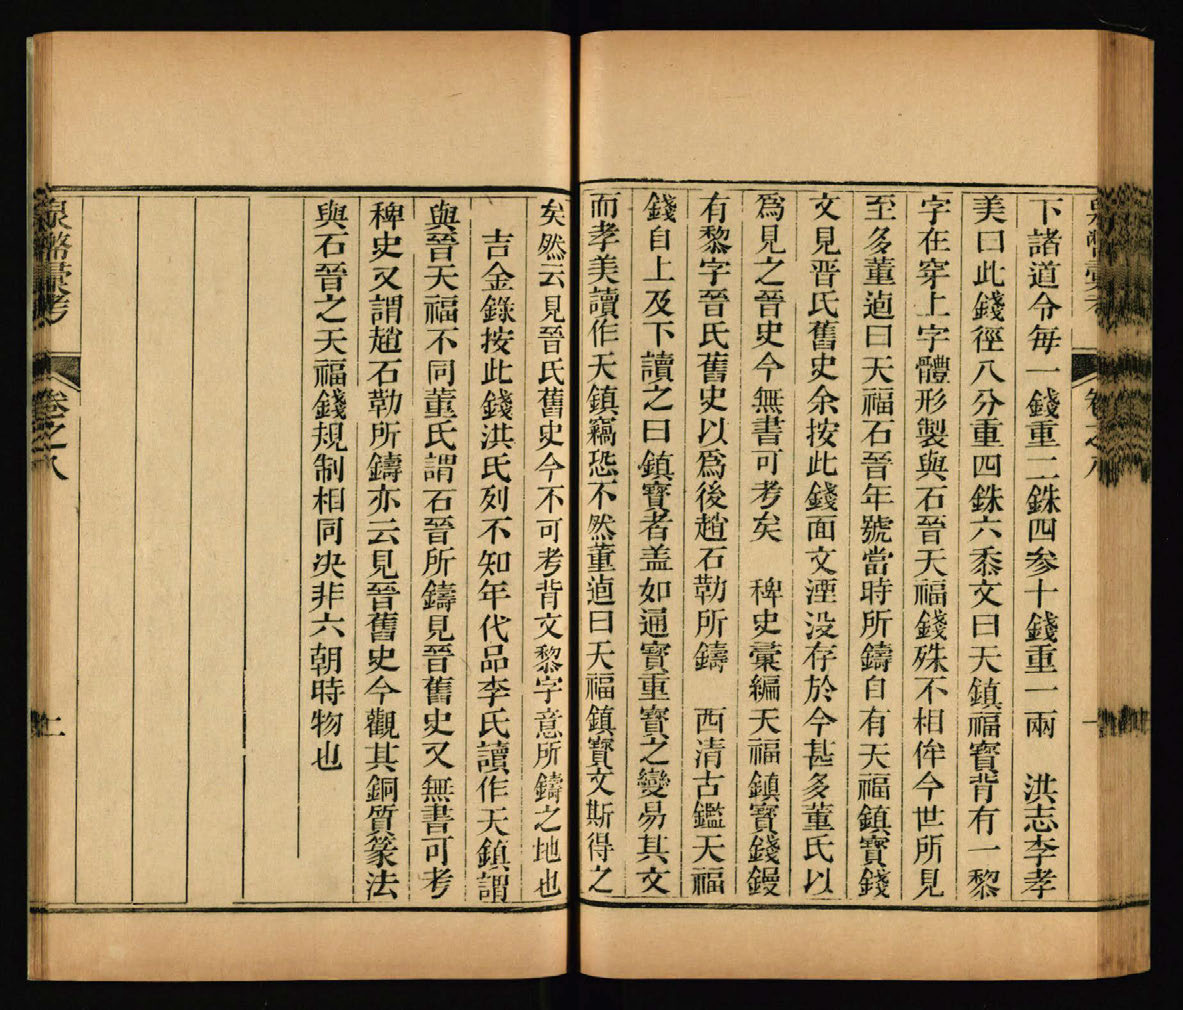 下諸道令每一錢重二銖四参十錢重一兩　洪志李孝
美曰此錢徑八分重四銖六黍文曰天鎮福寶背有一黎
字在穿上字體形製與石晉天福錢殊不相侔今世所見
至多董逌曰天福石晉年號當時所鑄自有天福鎮寶錢
文見晋氏舊史余按此錢面文湮没存於今甚多董氏以
爲見之晉史今無書可考矣　稗史彙編天福鎮寶錢鏝
有黎字晉氏舊史以爲後趙石勒所鑄　西清古鑑天福
錢自上及下讀之曰鎮寶者盖如通寶重寶之變易其文
而孝美讀作天鎮竊恐不然董逌曰天福鎮寶文斯得之
矣然云見晉氏舊史今不可考背文黎字意所鑄之地也
吉金錄按此錢洪氏列不知年代品李氏讀作天鎮謂
與晉天福不同董氏謂石晉所鑄見晉舊史又無書可考
稗史又謂趙石勒所鑄亦云見晉舊史今觀其銅質篆法
與石晉之天福錢規制相同决非六朝時物也
泉幣彙考　卷之八　二